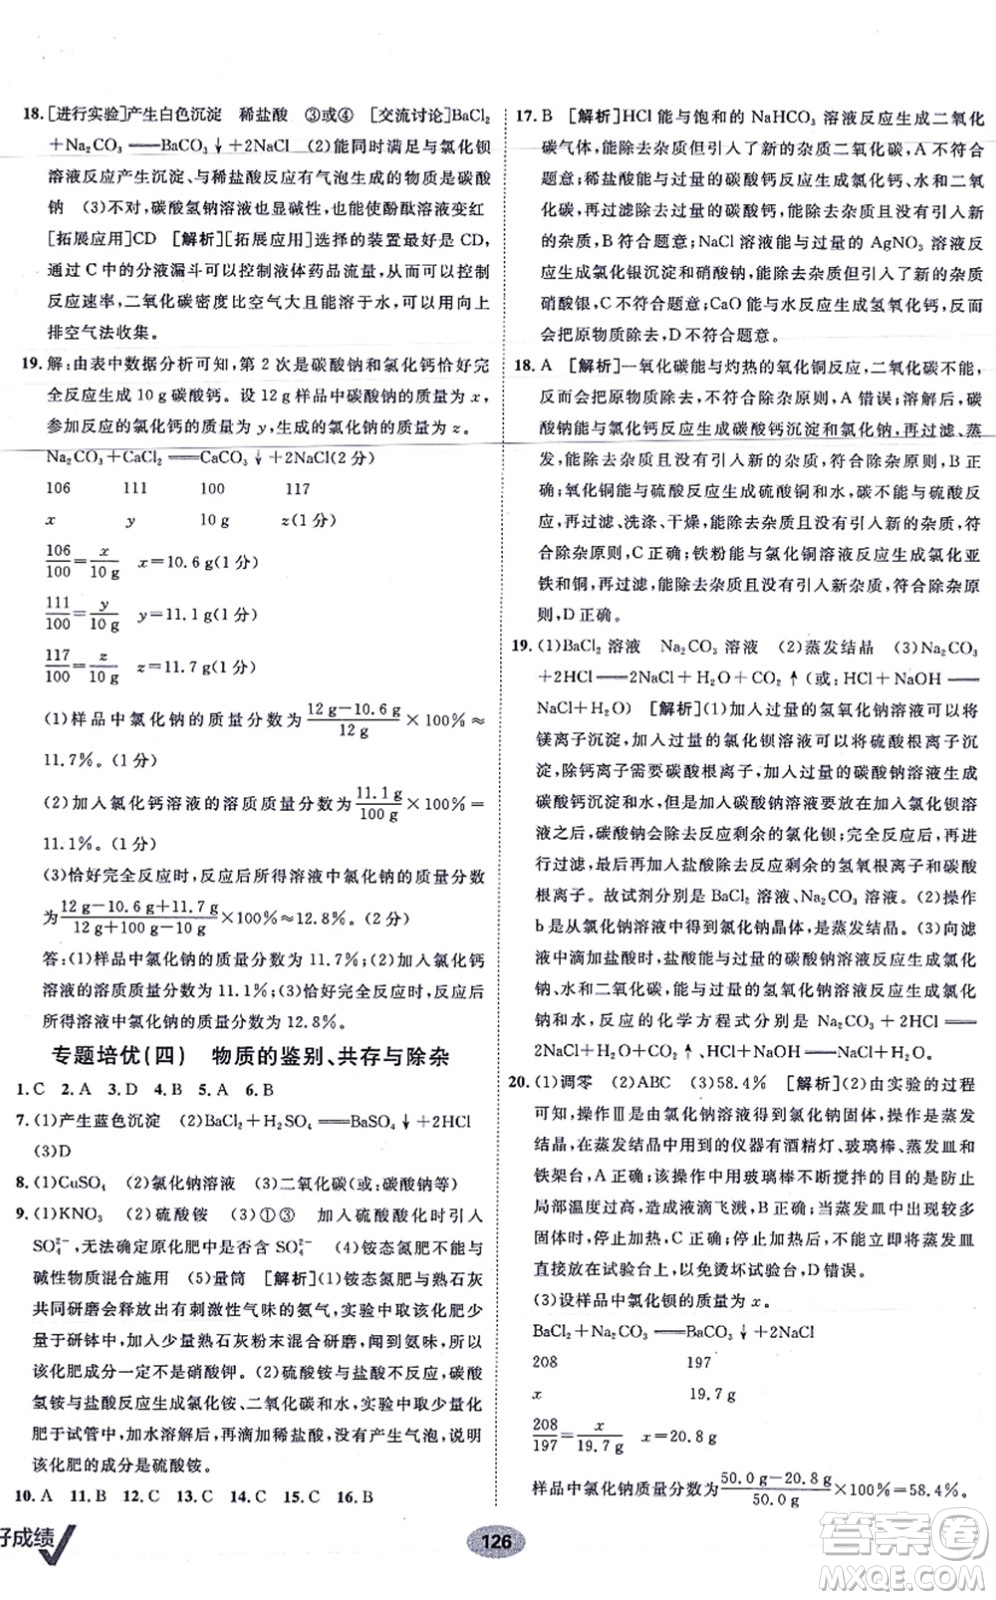 18.[进行实验]产生白色沉淀　稀盐酸　③或④　[交流讨论]BaCl₂
+Na₂CO₃══BaCO₃↓+2NaCl　(2)能同时满足与氯化钡
溶液反应产生沉淀、与稀盐酸反应有气泡生成的物质是碳酸
钠　(3)不对,碳酸氢钠溶液也显碱性,也能使酚酞溶液变红
[拓展应用]CD　[解析][拓展应用]选择的装置最好是 CD,
通过 C 中的分液漏斗可以控制液体药品流量,从而能控制
反应速率,二氧化碳密度比空气大且能溶于水,可以用向上
排空气法收集。
19.解:由表中数据分析可知,第 2 次是碳酸钠和氯化钙恰好完
全反应生成 10 g 碳酸钙。设 12 g 样品中碳酸钠的质量为 x,
参加反应的氯化钙的质量为 y,生成的氯化钠的质量为 z。
Na₂CO₃+CaCl₂══CaCO₃↓+2NaCl(2 分)
106　111　100　117
x　y　10 g　z(1 分)
106/100=x/10 g　x=10.6 g(1 分)
111/100=y/10 g　y=11.1 g(1 分)
117/100=z/10 g　z=11.7 g(1 分)
(1)样品中氯化钠的质量分数为(12 g-10.6 g)/12 g×100%≈
11.7%。(1 分)
(2)加入氯化钙溶液的溶质质量分数为11.1 g/100 g×100%=
11.1%。(1 分)
(3)恰好完全反应时,反应后所得溶液中氯化钠的质量分数
为(12 g-10.6 g+11.7 g)/(12 g+100 g-10 g)×100%≈12.8%。(2 分)
答:(1)样品中氯化钠的质量分数为 11.7%;(2)加入氯化钙
溶液的溶质质量分数为 11.1%;(3)恰好完全反应时,反应后
所得溶液中氯化钠的质量分数为 12.8%。
专题培优(四)　物质的鉴别、共存与除杂
1.C　2.A　3.D　4.B　5.A　6.B
7.(1)产生蓝色沉淀　(2)BaCl₂+H₂SO₄══BaSO₄↓+2HCl
(3)D
8.(1)CuSO₄　(2)氯化钠溶液　(3)二氧化碳(或:碳酸钠等)
9.(1)KNO₃　(2)硫酸铵　(3)①③　加入硫酸酸化时引入
SO₄²⁻,无法确定原化肥中是否含 SO₄²⁻　(4)铵态氮肥不能与
碱性物质混合施用　(5)量筒　[解析](1)铵态氮肥与熟石灰
共同研磨会释放出有刺激性气味的氨气,实验中取该化肥少
量于研钵中,加入少量熟石灰粉末混合研磨,闻到氨味,所以
该化肥成分一定不是硝酸钾。(2)硫酸铵与盐酸不反应,碳酸
氢铵与盐酸反应生成氯化铵、二氧化碳和水,实验中取少量化
肥于试管中,加水溶解后,加入稀盐酸,没有产生气泡,说明
该化肥的成分是硫酸铵。
10.A　11.B　12.C　13.C　14.C　15.C　16.B
17.B　[解析]HCl 能与饱和的 NaHCO₃ 溶液反应生成二氧化
碳气体,能除去杂质但引入了新的杂质二氧化碳,A 不符合
题意;稀盐酸能与过量的碳酸钙反应生成氯化钙、水和二氧
化碳,再过滤除去过量的碳酸钙,能除去杂质且没有引入新
的杂质,B 符合题意;NaCl 溶液能与过量的 AgNO₃ 溶液反
应生成氯化银沉淀和硝酸钠,能除去杂质但引入了新的杂质
硝酸银,C 不符合题意;CaO 能与水反应生成氢氧化钙,反而
会把原物质除去,D 不符合题意。
18.A　[解析]一氧化碳能与灼热的氧化铜反应,二氧化碳不能,
反而会把原物质除去,不符合除杂原则,A 错误;溶解后,碳
酸钠能与氯化钙反应生成碳酸钙沉淀和氯化钠,再过滤、蒸
发,能除去杂质且没有引入新的杂质,符合除杂原则,B 正
确;氧化铜能与硫酸反应生成硫酸铜和水,而铜不与硫酸反
应,再过滤、洗涤、干燥,能除去杂质且没有引入新杂质,符
合除杂原则,C 正确;铁粉能与氯化铜溶液反应生成氯化亚
铁和铜,再过滤,能除去杂质且没有引入新杂质,符合除杂原
则,D 正确。
19.(1)BaCl₂ 溶液　Na₂CO₃ 溶液　(2)蒸发结晶　(3)Na₂CO₃
+2HCl══2NaCl+H₂O+CO₂↑(或:HCl+NaOH══
NaCl+H₂O)　[解析](1)加入过量的氢氧化钠溶液可以将
镁离子沉淀,加入过量的氯化钡溶液可以将硫酸根离子沉
淀,除钙离子需要碳酸根离子,加入过量的碳酸钠溶液生成
碳酸钙沉淀,但是加入碳酸钠溶液要放在加入的氯化钡溶
液之后,这样碳酸钠会除去反应剩余的氯化钡。完全反应
后,再进行过滤,最后再加入盐酸除去反应剩余的氢氧根离子
和碳酸根离子。故试剂分别是 BaCl₂ 溶液、Na₂CO₃ 溶液。(2)操作
b 是从氯化钠溶液中得到氯化钠晶体,是蒸发结晶。(3)向滤
液中滴加盐酸时,盐酸能与过量的碳酸钠溶液反应生成氯化
钠、水和二氧化碳,能与过量的氢氧化钠溶液反应生成氯化
钠和水,反应的化学方程式分别为 Na₂CO₃+2HCl══
2NaCl+H₂O+CO₂↑、HCl+NaOH══NaCl+H₂O。
20.(1)调零　(2)ABC　(3)58.4%　[解析](2)由实验的过程
可知,操作Ⅲ是从氯化钠溶液得到氯化钠固体,操作是蒸发
结晶,在蒸发结晶中用到的仪器有酒精灯、玻璃棒、蒸发皿、
铁架台,A 正确;该操作中用玻璃棒不断搅拌的目的是防止
局部温度过高,造成液滴飞溅,B 正确;当蒸发皿中出现较多
固体时,停止加热,C 正确;停止加热后,不可将热的蒸发皿
直接放在试验台上,以免烫坏试验台,D 错误。
(3)设样品中氯化钡的质量为 x。
BaCl₂+Na₂CO₃══BaCO₃↓+2NaCl
208　197
x　19.7 g
208/197=x/19.7 g　x=20.8 g
样品中氯化钠质量分数为(50.0 g-20.8 g)/50.0 g×100%=58.4%。
好成绩
126
答案圈
MXQE.COM